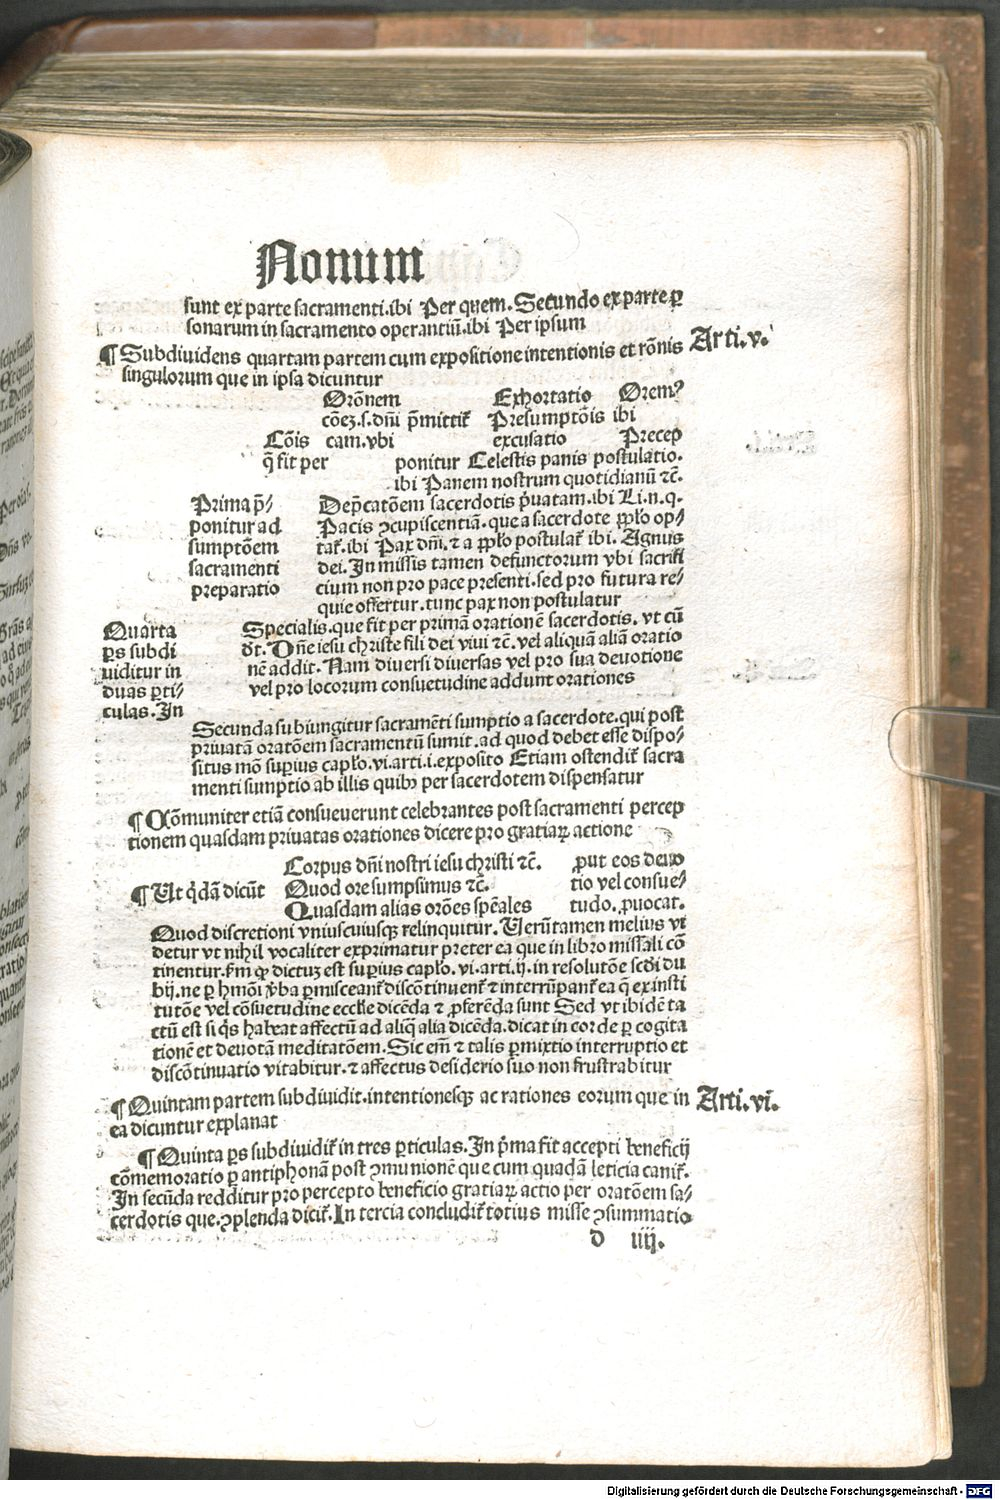 Nonum
sunt ex parte sacramenti.ibi Per quem.Secundo ex parte ꝑ
sonarum in sacramento operantiū.ibi Per ipsum
¶ Subdiuidens quartam partem cum expositione intentionis et rōnis
singulorum que in ipsa dicuntur
Arti.v.
Orōnem Exhortatio Orem⁹
cōeꝫ.s.dn̄i p̄mittit᷑ Presumptōis ibi
Cōis cam.vbi excusatio Precep
q̄ fit per ponitur Celestis panis postulatio.
ibi Panem nostrum quotidianū ⁊c̄.
Prima p̄- Dep̄catōem sacerdotis p̄uatam.ibi Li.n.q.
ponitur ad Pacis ↄcupiscentiā.que a sacerdote ꝓpl̄o op-
sumptōem tat᷑.ibi Pax dn̄i.⁊ a ꝓpl̄o postulat᷑ ibi. Agnus
sacramenti dei.In missis tamen defunctorum vbi sacrifi
preparatio cium non pro pace presenti.sed pro futura re-
quie offertur.tunc pax non postulatur
Quarta Specialis.que fit per primā orationē sacerdotis.vt cū
ꝑs subdi dr̄t.Dn̄e iesu christe fili dei viui ⁊c̄.vel aliquā aliā oratio
uiditur in nē addit.Nam diuersi diuersas vel pro sua deuotione
duas ꝑti- vel pro locorum consuetudine addunt orationes
culas.In
Secunda subiungitur sacramēti sumptio a sacerdote.qui post
priuatā oratōem sacramentū sumit.ad quod debet esse dispo-
situs mō suꝑius capl̄o.vi.arti.i.exposito Etiam ostendit᷑ sacra
menti sumptio ab illis quibꝫ per sacerdotem dispensatur
¶ Cōmuniter etiā consueuerunt celebrantes post sacramenti percep
tionem quasdam priuatas orationes dicere pro gratiaꝝ actione
Corpus dn̄i nostri iesu christi ⁊c̄. ꝓut eos deuo
¶ Ut q̇dā dicūt Quod ore sumpsimus ⁊c̄. tio vel consue-
Quasdam alias orōes spēales tudo.ꝓuocat.
Quod discretioni vniuscuiusqꝫ relinquitur.Uerūtamen melius vi
detur vt nihil vocaliter exprimatur preter ea que in libro missali cō
tinentur.fm ꝙ dictuꝫ est suꝑius capl̄o.vi.arti.ij.in resolutōe scd̄i du
bij.ne ꝑ hmōi v̄ba ꝑmisceant᷑ discōtinuent᷑ ⁊ interrūpant᷑ ea q̄ ex insti
tutōe vel cōsuetudine eccl̄ie dicēda ⁊ ꝓferēda sunt Sed vt ibidē ta
ctū est si q̄s habeat affectū ad aliq̄ alia dicēda.dicat in corde ꝑ cogita
tionē et deuotā meditatōem.Sic em̄ ⁊ talis ꝑmixtio interruptio et
discōtinuatio vitabitur.⁊ affectus desiderio suo non frustrabitur
¶ Quintam partem subdiuidit.intentionesqꝫ ac rationes eorum que in
ea dicuntur explanat
Arti.vi.
¶ Quinta ꝑs subdiuidit᷑ in tres ꝑticulas.In p̄ma fit accepti beneficij
cōmemoratio ꝑ antiphonā post ↄmunionē que cum quadā leticia canit᷑.
In secūda redditur pro percepto beneficio gratiaꝝ actio per oratōem sa-
cerdotis que.ↄplenda dicit᷑.In tercia concludit᷑ totius misse ↄsummatio
d iiij.
Digitalisierung gefördert durch die Deutsche Forschungsgemeinschaft - DFG